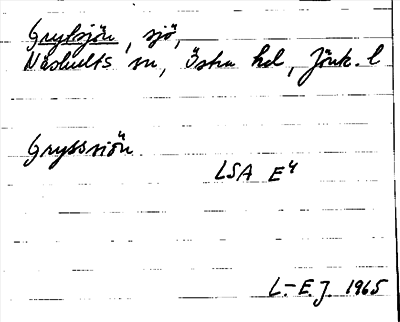 Grylsjön, sjö,
Näshults sn, Östra hd, Jönk. l
Gryssiön.
LSA E4
L.-E.J. 1965